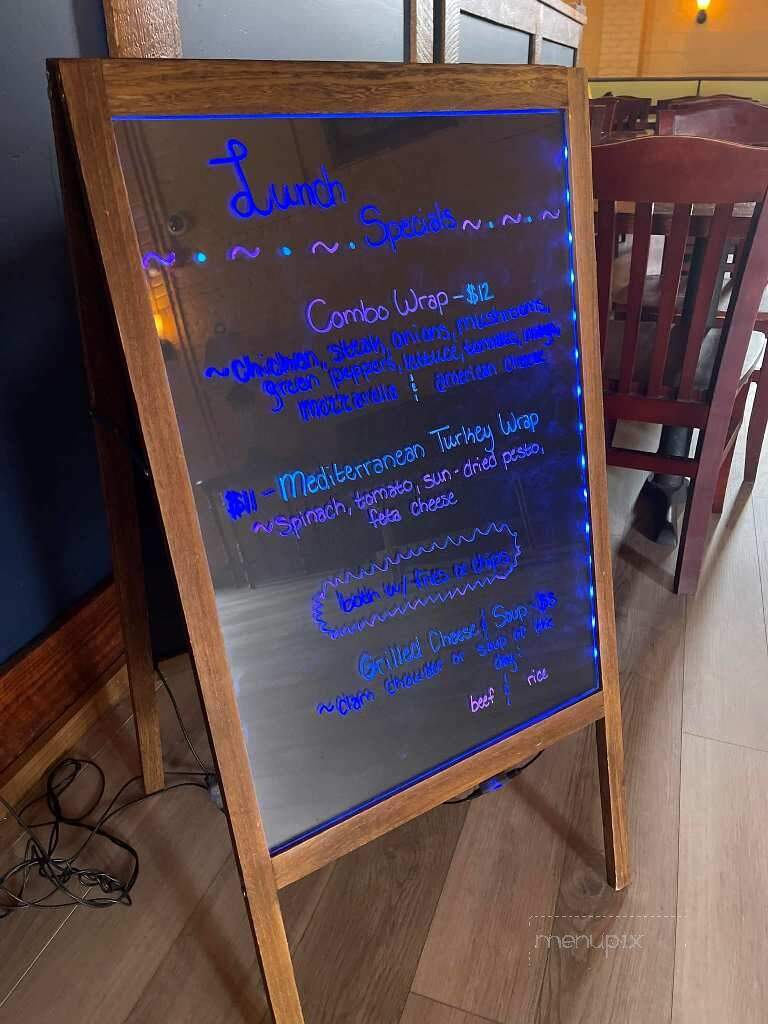 Lunch
Specials
Combo Wrap - $12
~ chicken, steak, onions, mushrooms,
green peppers, lettuce, tomatoes, mayo,
mozzarella & american cheese
$11 - Mediterranean Turkey Wrap
~ spinach, tomato, sun-dried pesto,
feta cheese
both w/ fries or chips
Grilled Cheese & Soup - $8
~ clam chowder or soup of the
day:
beef & rice
menupix